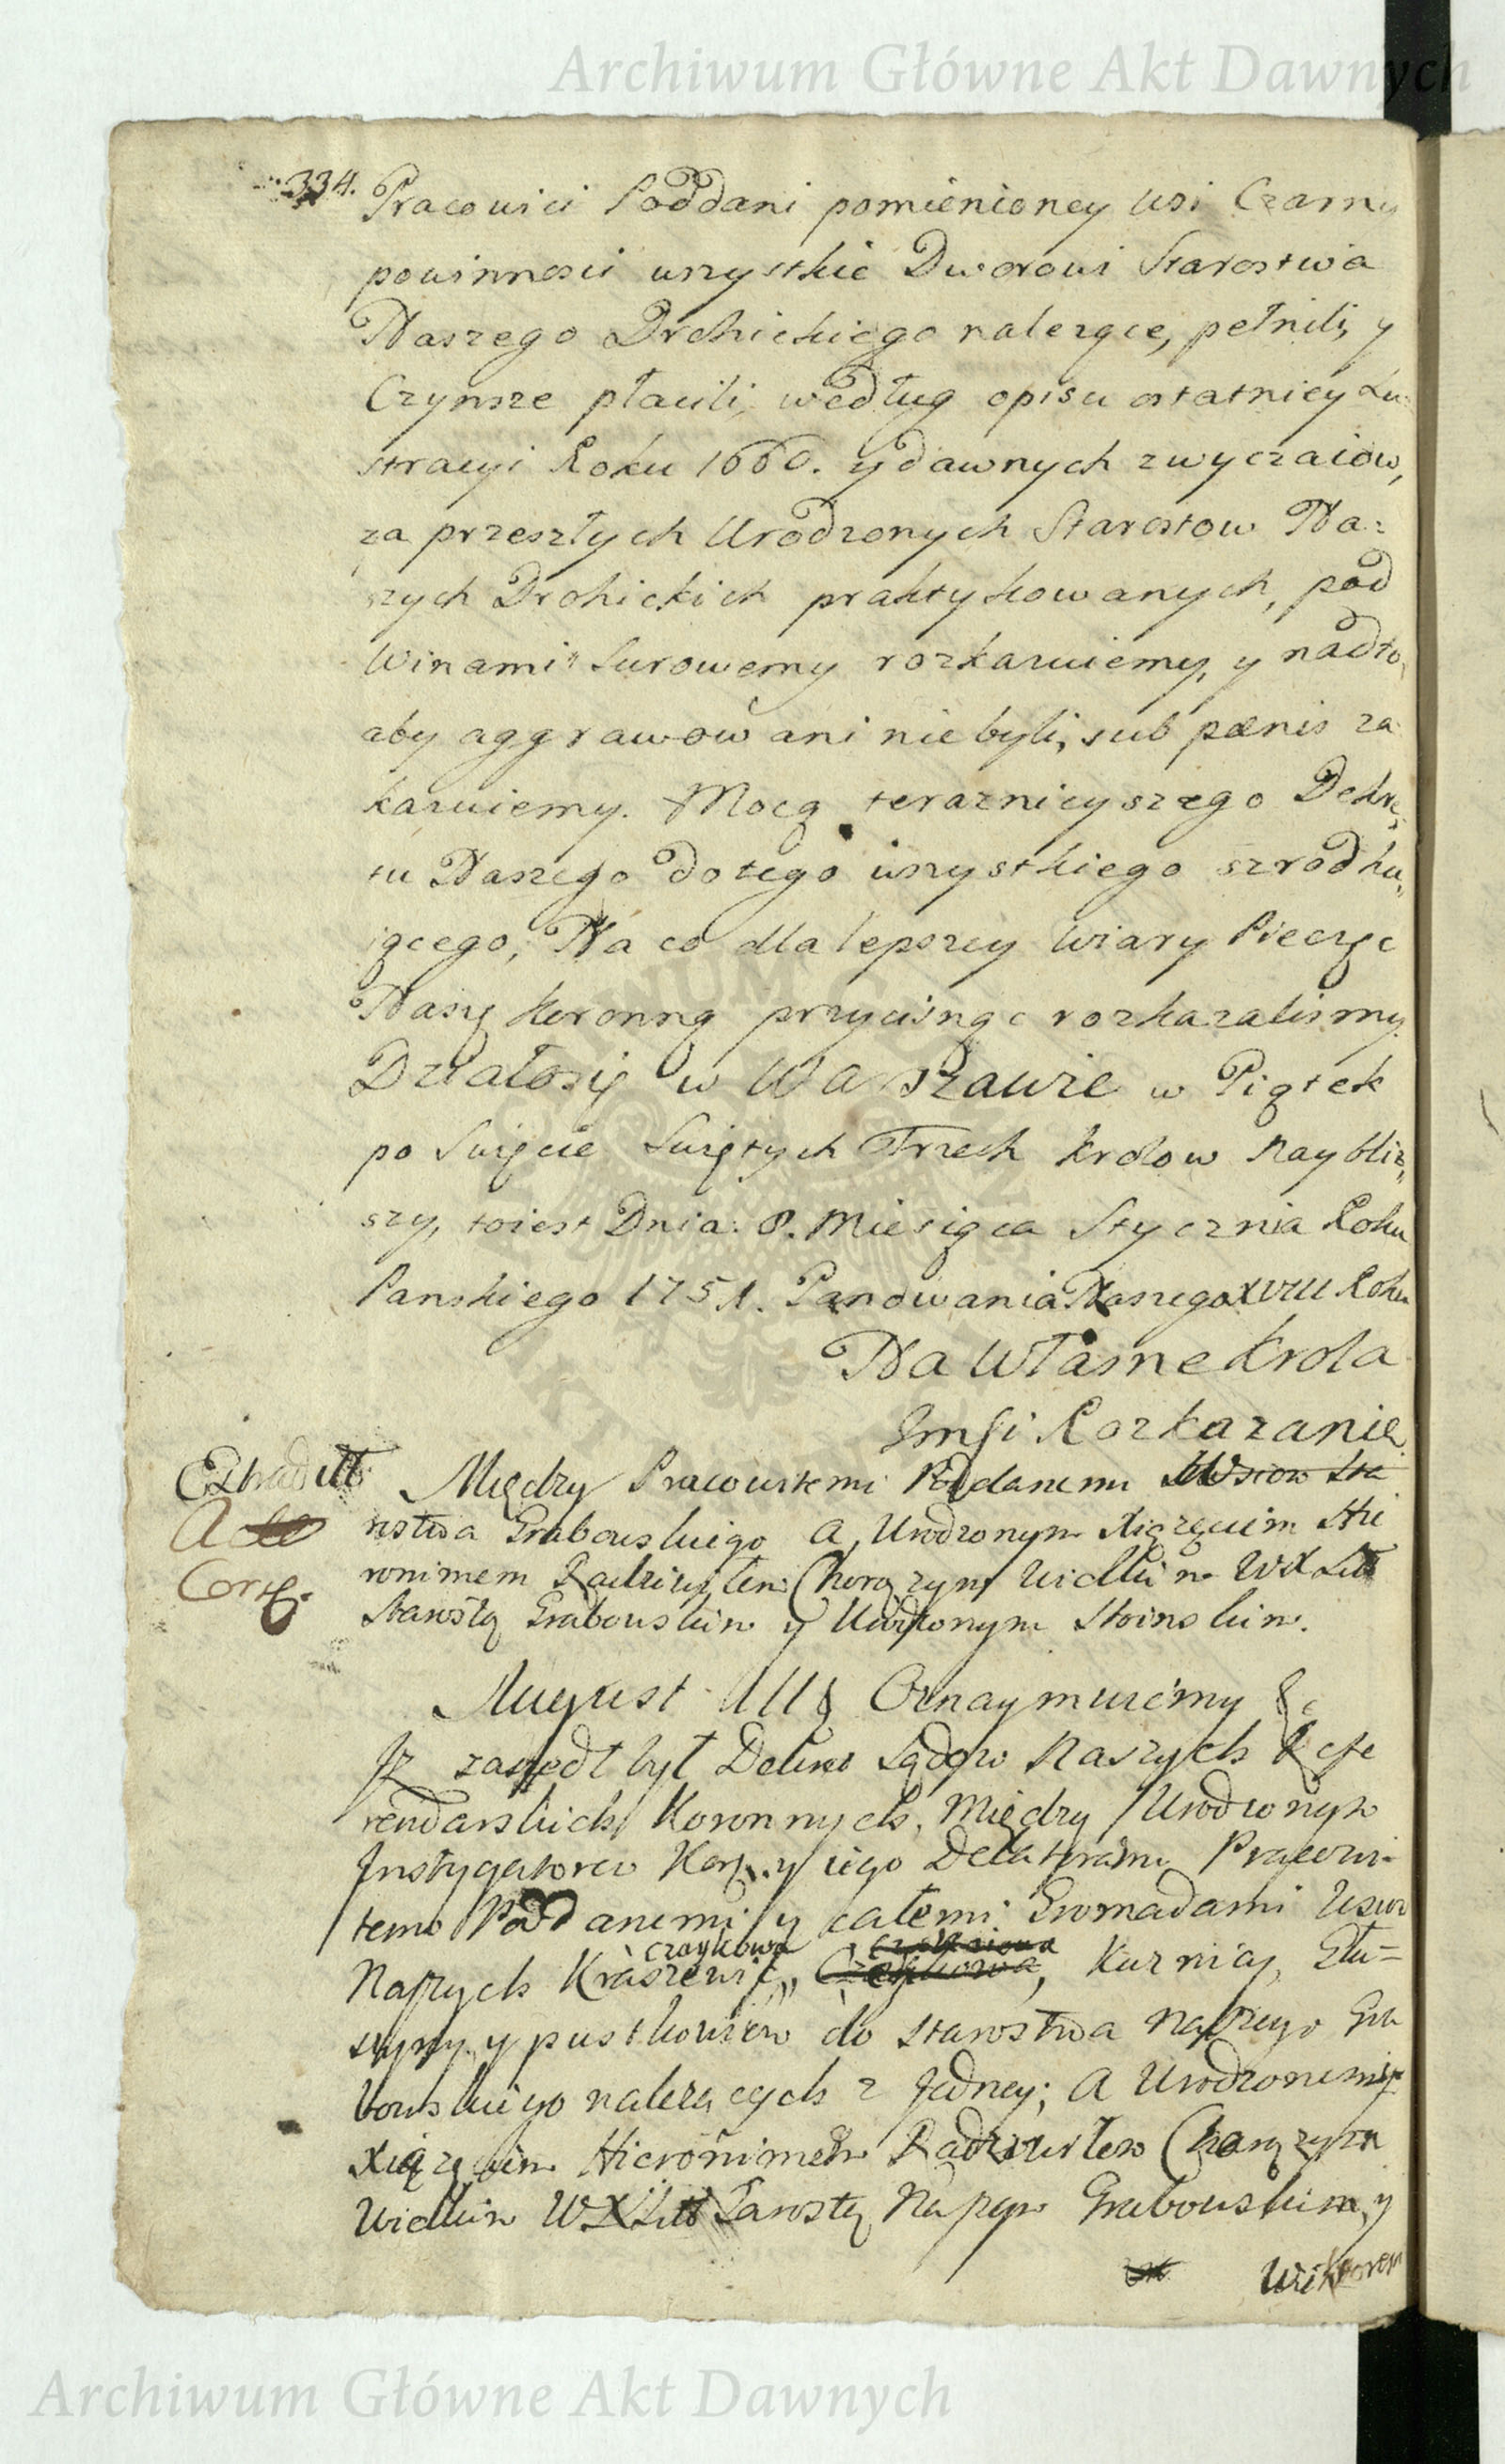 Archiwum Główne Akt Dawnych
334.
Pracowici Poddani pomienioney wsi Czarny
powinnosci wszystkie Dworowi Starostwa
Naszego Drohickiego nalezące, pełnili, y
Czynsze płacili, według opisu ostatniey Lu
stracyi Roku 1660. y dawnych zwyczaiow,
za przeszłych Urodzonych Starostow Na:
szych Drohickich praktykowanych, pod
Winami Surowemy rozkazuiemy, y nadto
aby aggrawowani niebyli, sub pænis za
kazuiemy. Mocą teraznieyszego Dekre
tu Naszego do tego wszystkiego szrodku„
iącego, Na co dla lepszey Wiary Pieczęc
Naszę Koronną przycisnąc rozkazalismy.
Działosię w Warszawie w Piątek
po Swięcie Swiętych Trzech Krolow Naybliz„
szy, toiest Dnia 8. Miesiąca Stycznia Roku
Panskiego 1751. Panowania Naszego XVIII Roku
Na Własne Krola
Jmsi Rozkazanie
Extraditt
Corr.
Między Pracowitemi Poddanemi Wsiow Sta
rostwa Grabowskiego A, Urodzonym Xiązęciem Hie
ronimem Radziwiłem Chorązym Wielkim WXLitt
Starostą Grabowskim y Urodzonym Stoinskim.
August III Oznaymuiemy &c
Jz zaszedł był Dekret Sądow Naszych Refe
rendarskich Koronnych, Między Urodzonym
Instygatorem Kor. y iego Delatorami Pracowi-
temi Poddanemi y całemi Gromadami Wsiow
czaykowa
Naszych Kraszewic, Kuznicy, Głu=
szyny y pustkowiow do Starostwa Naszego Gra
bowskiego nalezących z Jedney; A Urodzonemi
Xiązęciem Hieronimem Radziwiłem Chorązym
Wielkim WXLitt Starostą Naszym Grabowskim, y
Wiktorem
Archiwum Główne Akt Dawnych